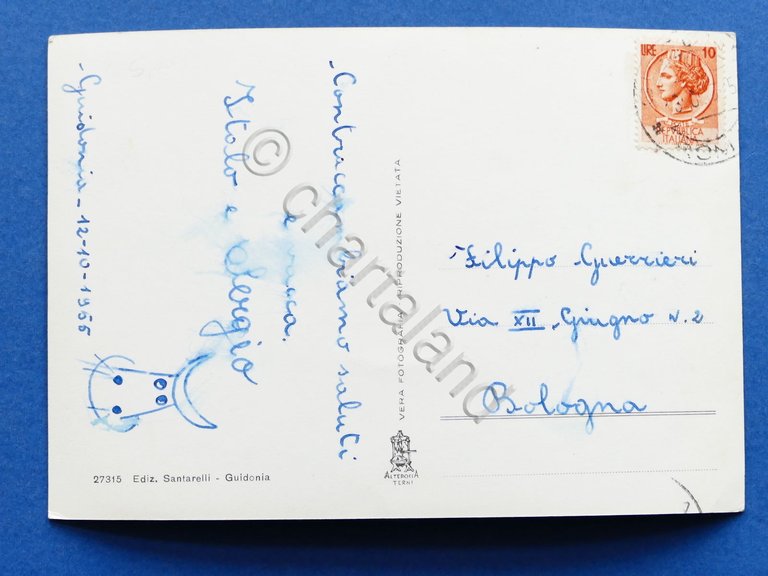 - Guidonia - 12-10-1955
- Contraccambiamo saluti
e
Italo e Sergio
27315 Ediz. Santarelli - Guidonia
VERA FOTOGRAFIA RIPRODUZIONE VIETATA
ALTEROCCA
TERNI
LIRE 10
REPUBBLICA
ITALIANA
Filippo Guerrieri
Via XII Giugno N. 2
Bologna
© chartaland